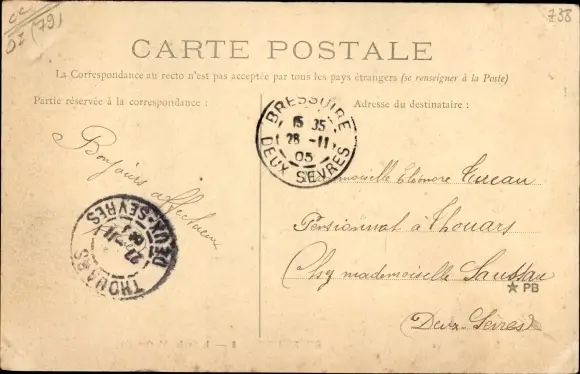 (79)
738
CARTE POSTALE
La Correspondance au recto n'est pas acceptée par tous les pays étrangers (se renseigner à la Poste)
Partie réservée à la correspondance :
Adresse du destinataire :
BRESSUIRE
15 35
28 -11
05
DEUX SEVRES
Bonjours affectueux
THOUARS
DEUX-SEVRES
Mademoiselle Eléonore
Pensionnat à Thouars
Chez mademoiselle
★ PB
(Deux Sèvres)